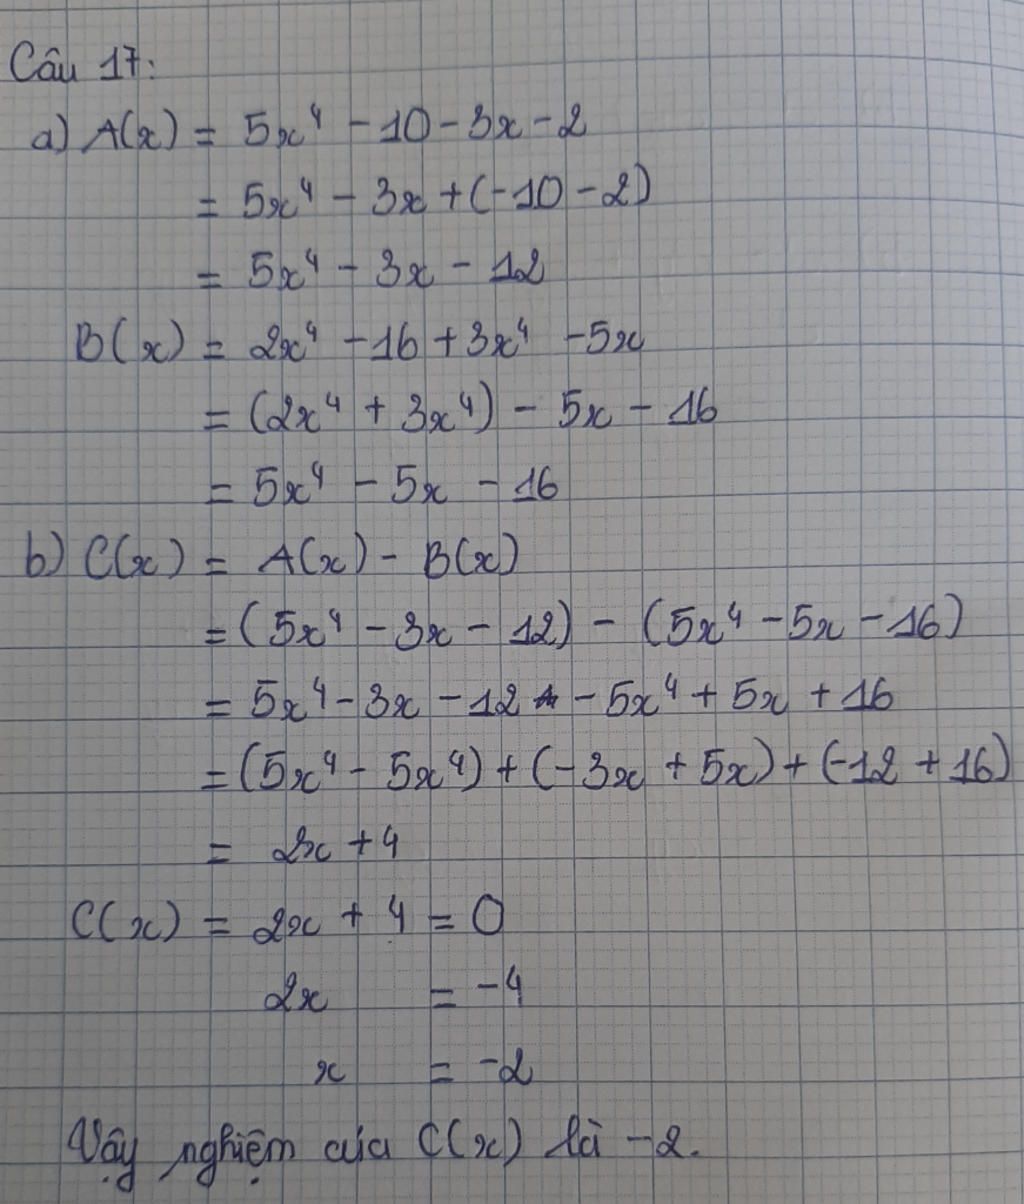 Câu 17:
a) A(x) = 5x⁴ - 10 - 3x - 2
= 5x⁴ - 3x + (-10 - 2)
= 5x⁴ - 3x - 12
B(x) = 2x⁴ - 16 + 3x⁴ - 5x
= (2x⁴ + 3x⁴) - 5x - 16
= 5x⁴ - 5x - 16
b) C(x) = A(x) - B(x)
= (5x⁴ - 3x - 12) - (5x⁴ - 5x - 16)
= 5x⁴ - 3x - 12 - 5x⁴ + 5x + 16
= (5x⁴ - 5x⁴) + (-3x + 5x) + (-12 + 16)
= 2x + 4
C(x) = 2x + 4 = 0
2x = -4
x = -2
Vậy nghiệm của C(x) là -2.